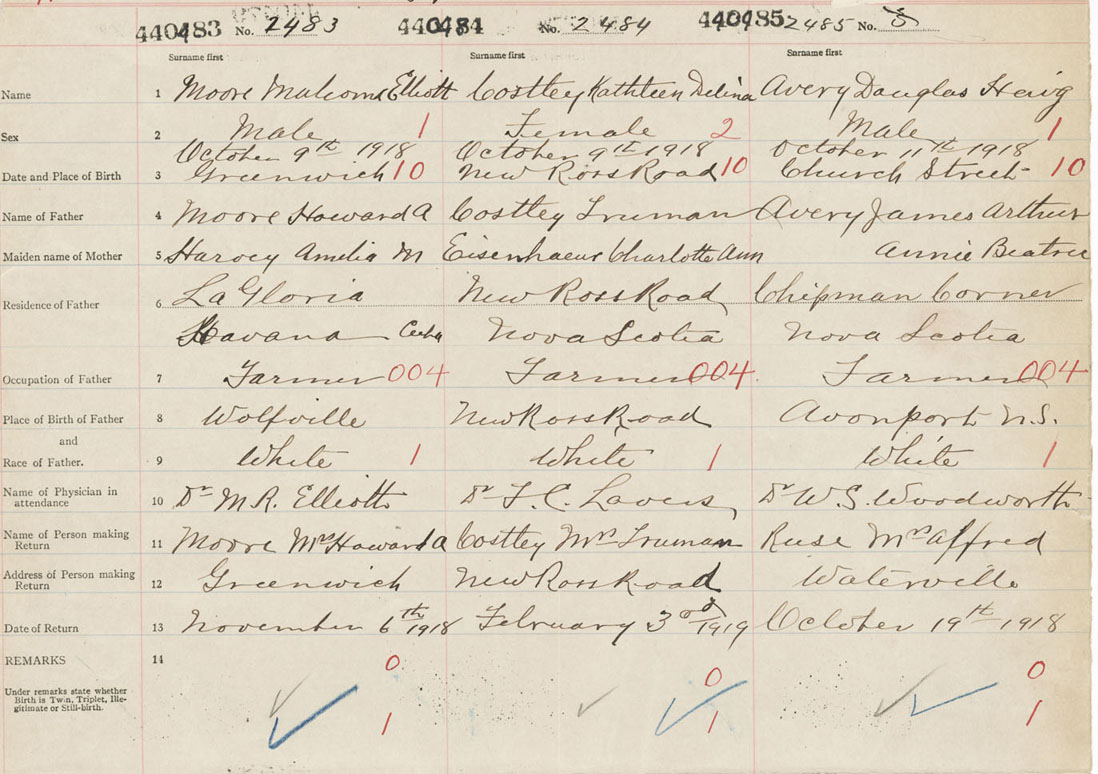 440483 No. 2483 440484 No. 2484 440485 2485 No. 5
Surname first Surname first Surname first
Name 1 Moore Malcom Elliott Costley Kathleen Delina Avery Douglas Haig
Sex 2 Male 1 Female 2 Male 1
October 9th 1918 October 9th 1918 October 11th 1918
Date and Place of Birth 3 Greenwich 10 New Ross Road 10 Church Street 10
Name of Father 4 Moore Howard A Costley Truman Avery James Arthur
Maiden name of Mother 5 Harvey Amelia M Eisenhaeur Charlotte Ann Annie Beatrice
Residence of Father 6 La Gloria New Ross Road Chipman Corner
Havana Cuba Nova Scotia Nova Scotia
Occupation of Father 7 Farmer 004 Farmer 004 Farmer 004
Place of Birth of Father 8 Wolfville New Ross Road Avonport N.S.
and
Race of Father. 9 White 1 White 1 White 1
Name of Physician in attendance 10 Dr M.R. Elliott Dr F.C. Lavers Dr W.S. Woodworth
Name of Person making Return 11 Moore Mrs Howard A Costley Mrs Truman Ruse Mrs Alfred
Address of Person making Return 12 Greenwich New Ross Road Waterville
Date of Return 13 November 6th 1918 February 3rd 1919 October 19th 1918
REMARKS 14 0 0 0
Under remarks state whether
Birth is Twin, Triplet, Ille-
gitimate or Still-birth.
1 1 1